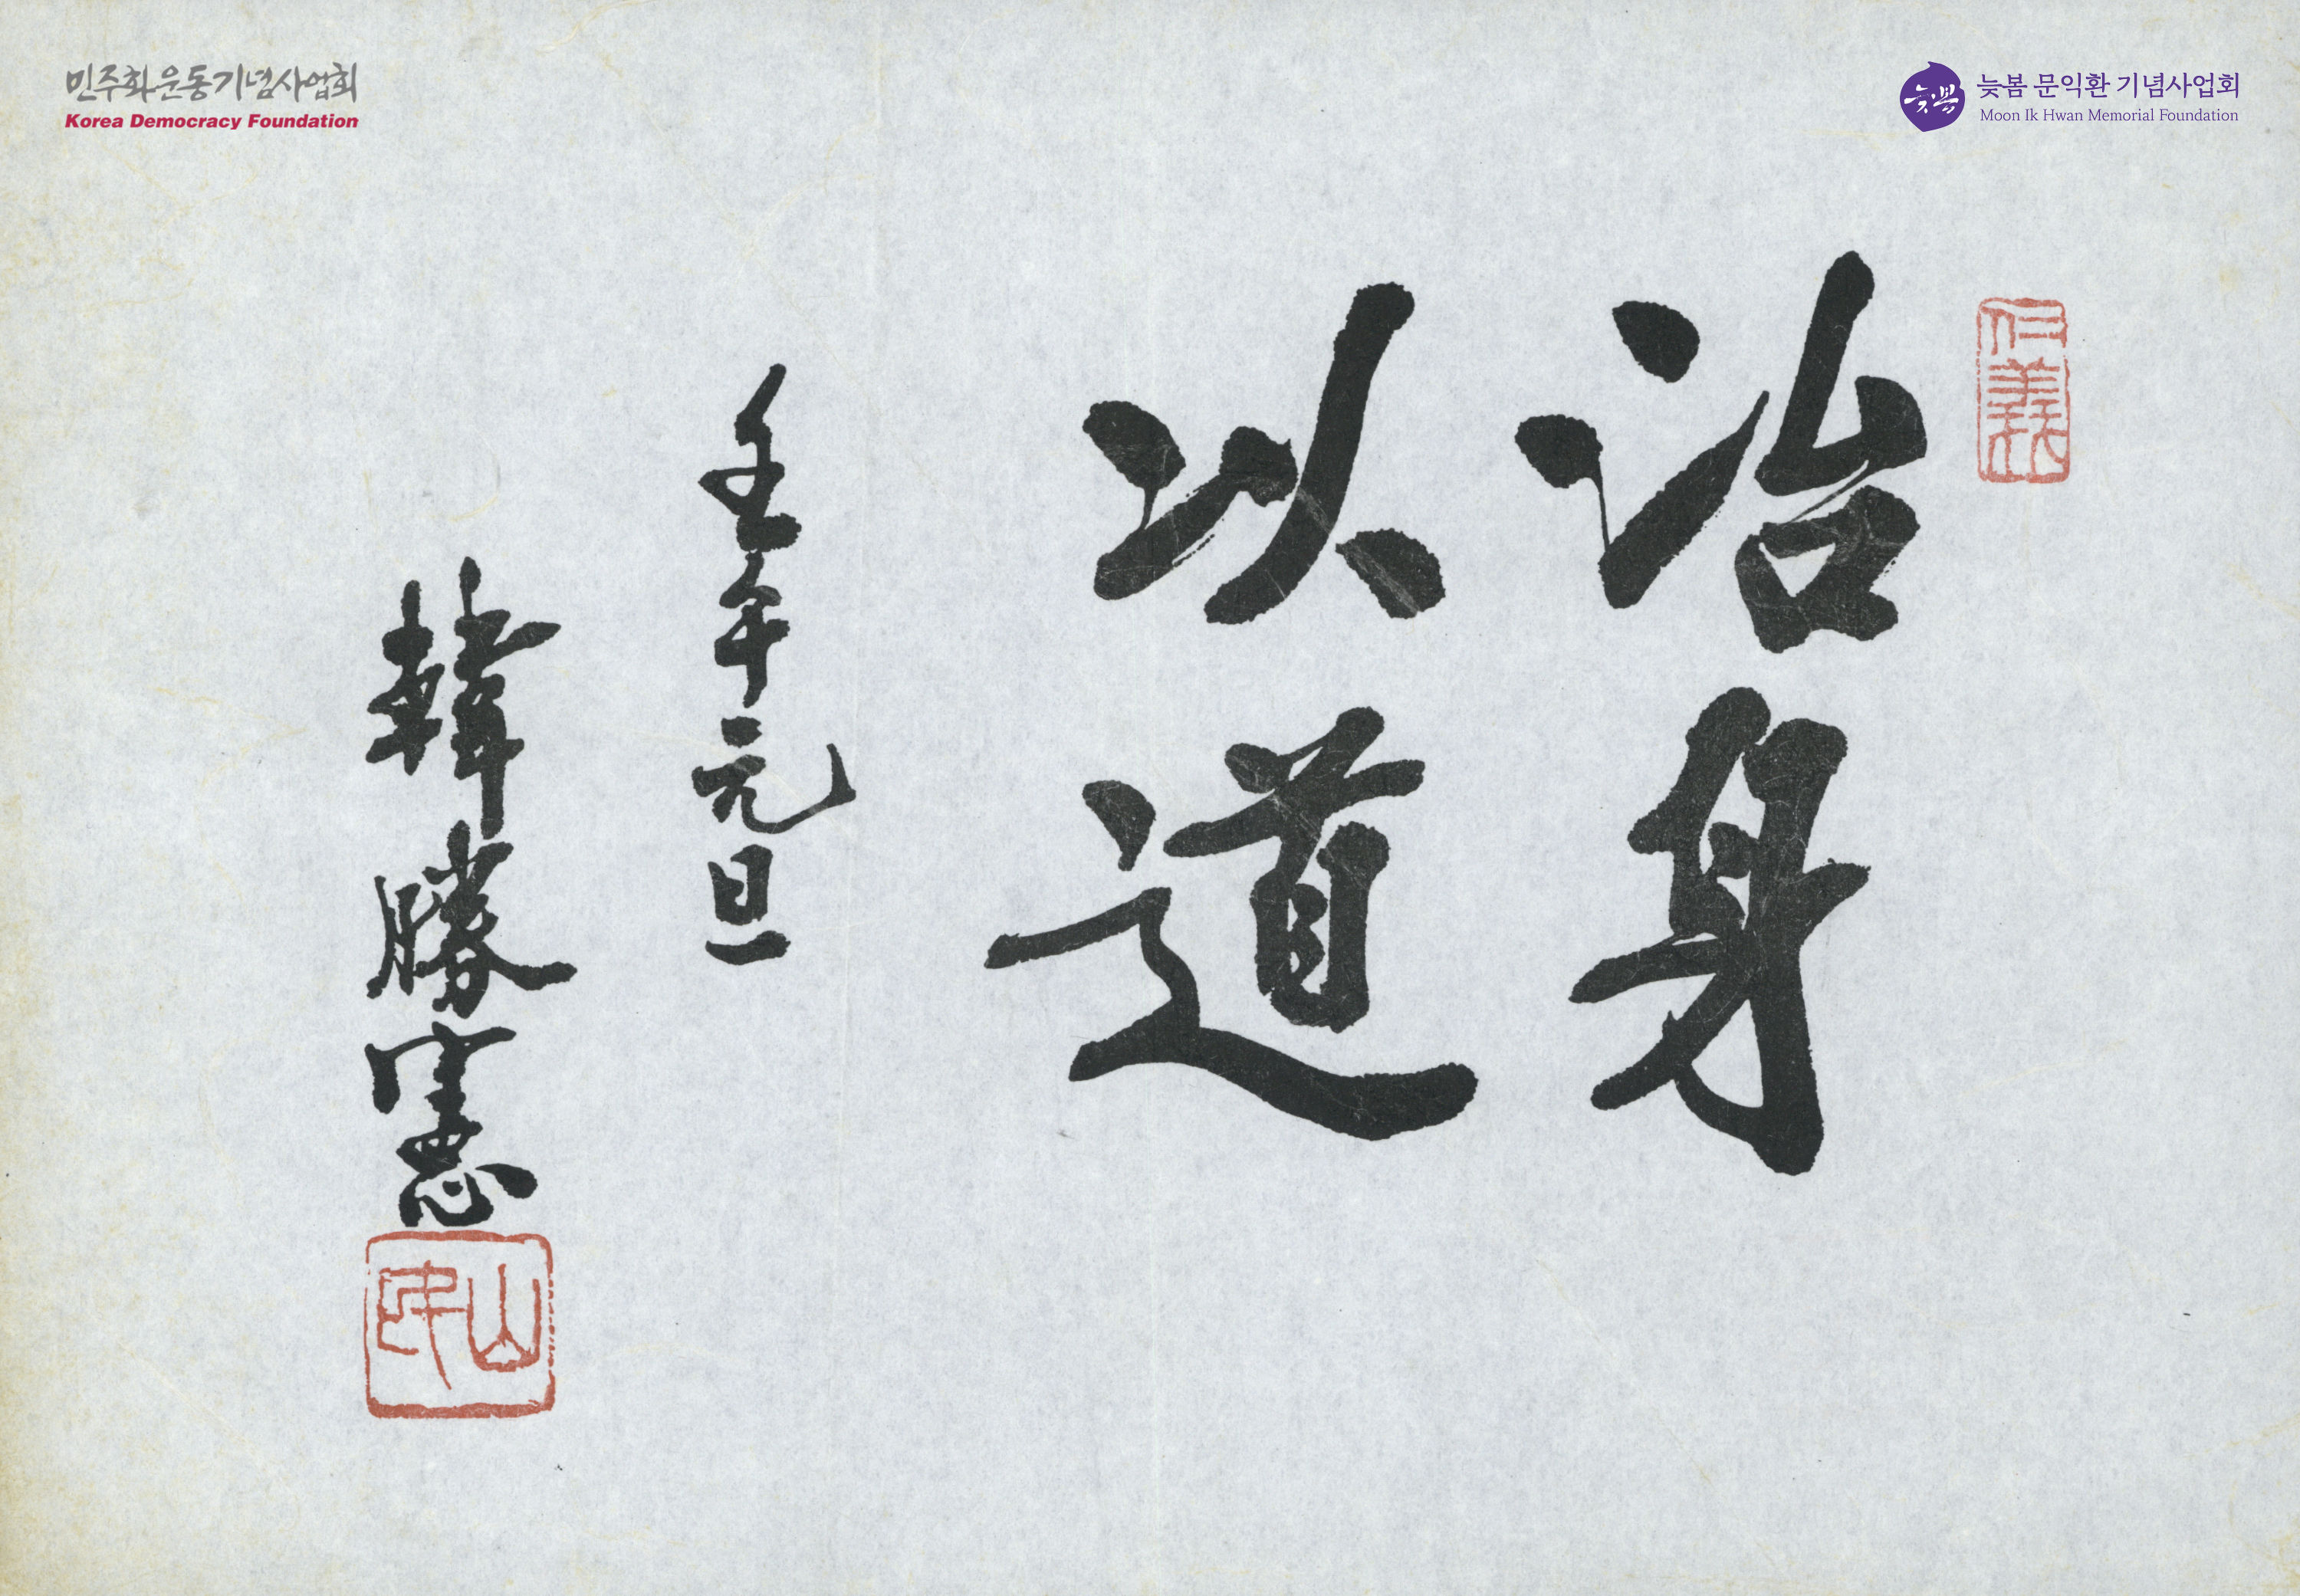 민주화운동기념사업회
Korea Democracy Foundation
늦봄
늦봄 문익환 기념사업회
Moon Ik Hwan Memorial Foundation
仁義
治身
以道
壬午元旦
韓勝憲
山民